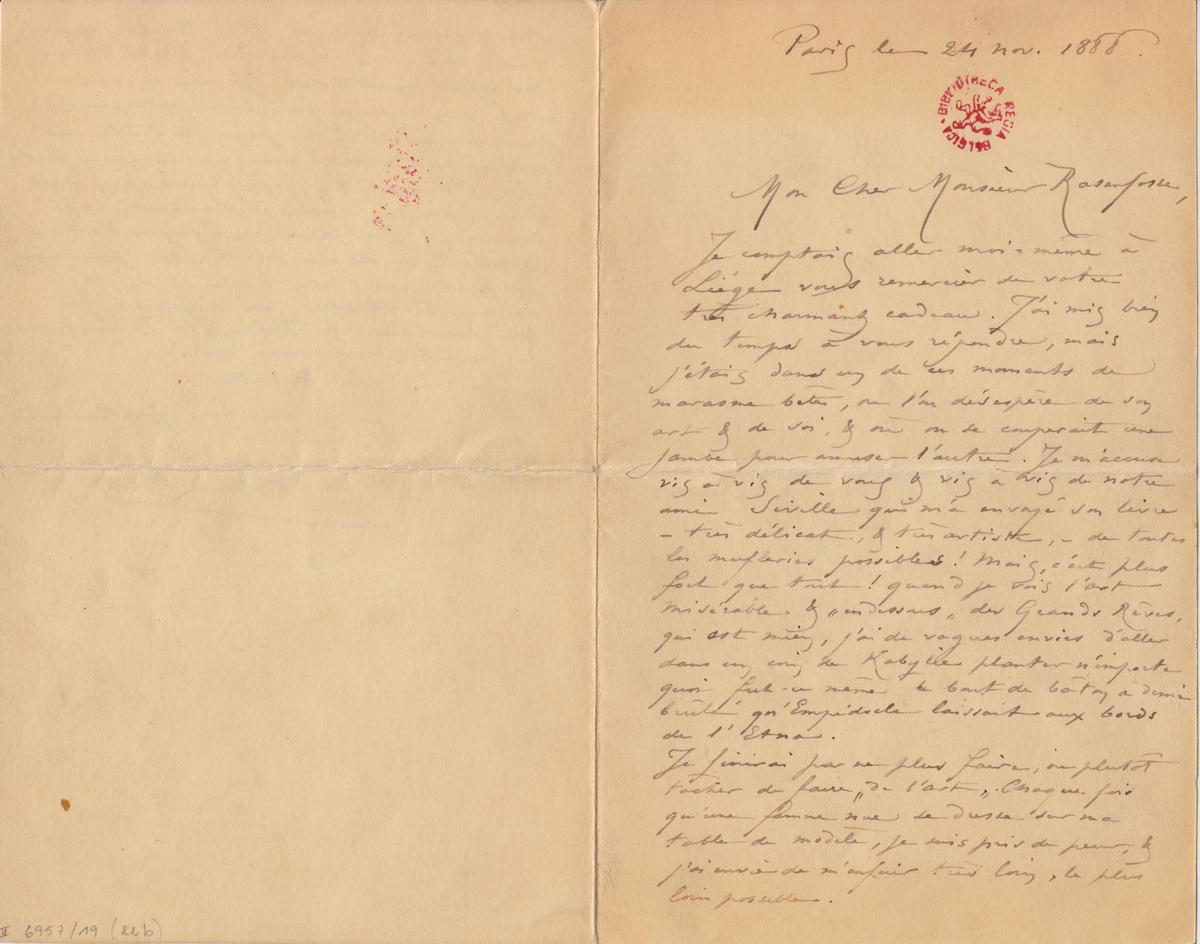 Paris le 24 nov. 1888.
BIBLIOTHECA REGIA BELGICA
Mon Cher Monsieur Rassenfosse,
Je comptais aller moi-même à
Liége vous remercier de votre
très charmant cadeau. J'ai mis bien
du temps à vous répondre, mais
j'étais dans un de ces moments de
marasme bête, ou l'on désespère de son
art & de soi, & où on se couperait une
jambe pour amuser l'autre. Je m'accuse
vis à vis de vous & vis à vis de notre
ami Séville qui m'a envoyé son livre
- très délicat, & très artiste, - de toutes
les mufleries possibles! Mais, c'est plus
fort que tout! quand je vois l'art
misérable & „en dessous„ des Grands Rêves,
qui est mien, j'ai de vagues envies d'aller
dans un coin de Kabylie planter n'importe
quoi fut-ce même le bout de bâton a demi
brûlé qu'Empédocle laissait aux bords
de l'Etna.
Je finirai par ne plus faire, ou plutôt
tâcher de faire „de l'art„. Chaque fois
qu'une femme nue se dresse sur ma
table de modèle, je suis pris de peur, &
j'ai envie de m'enfuir très loin, le plus
loin possible.
II 6957/19 (22b)